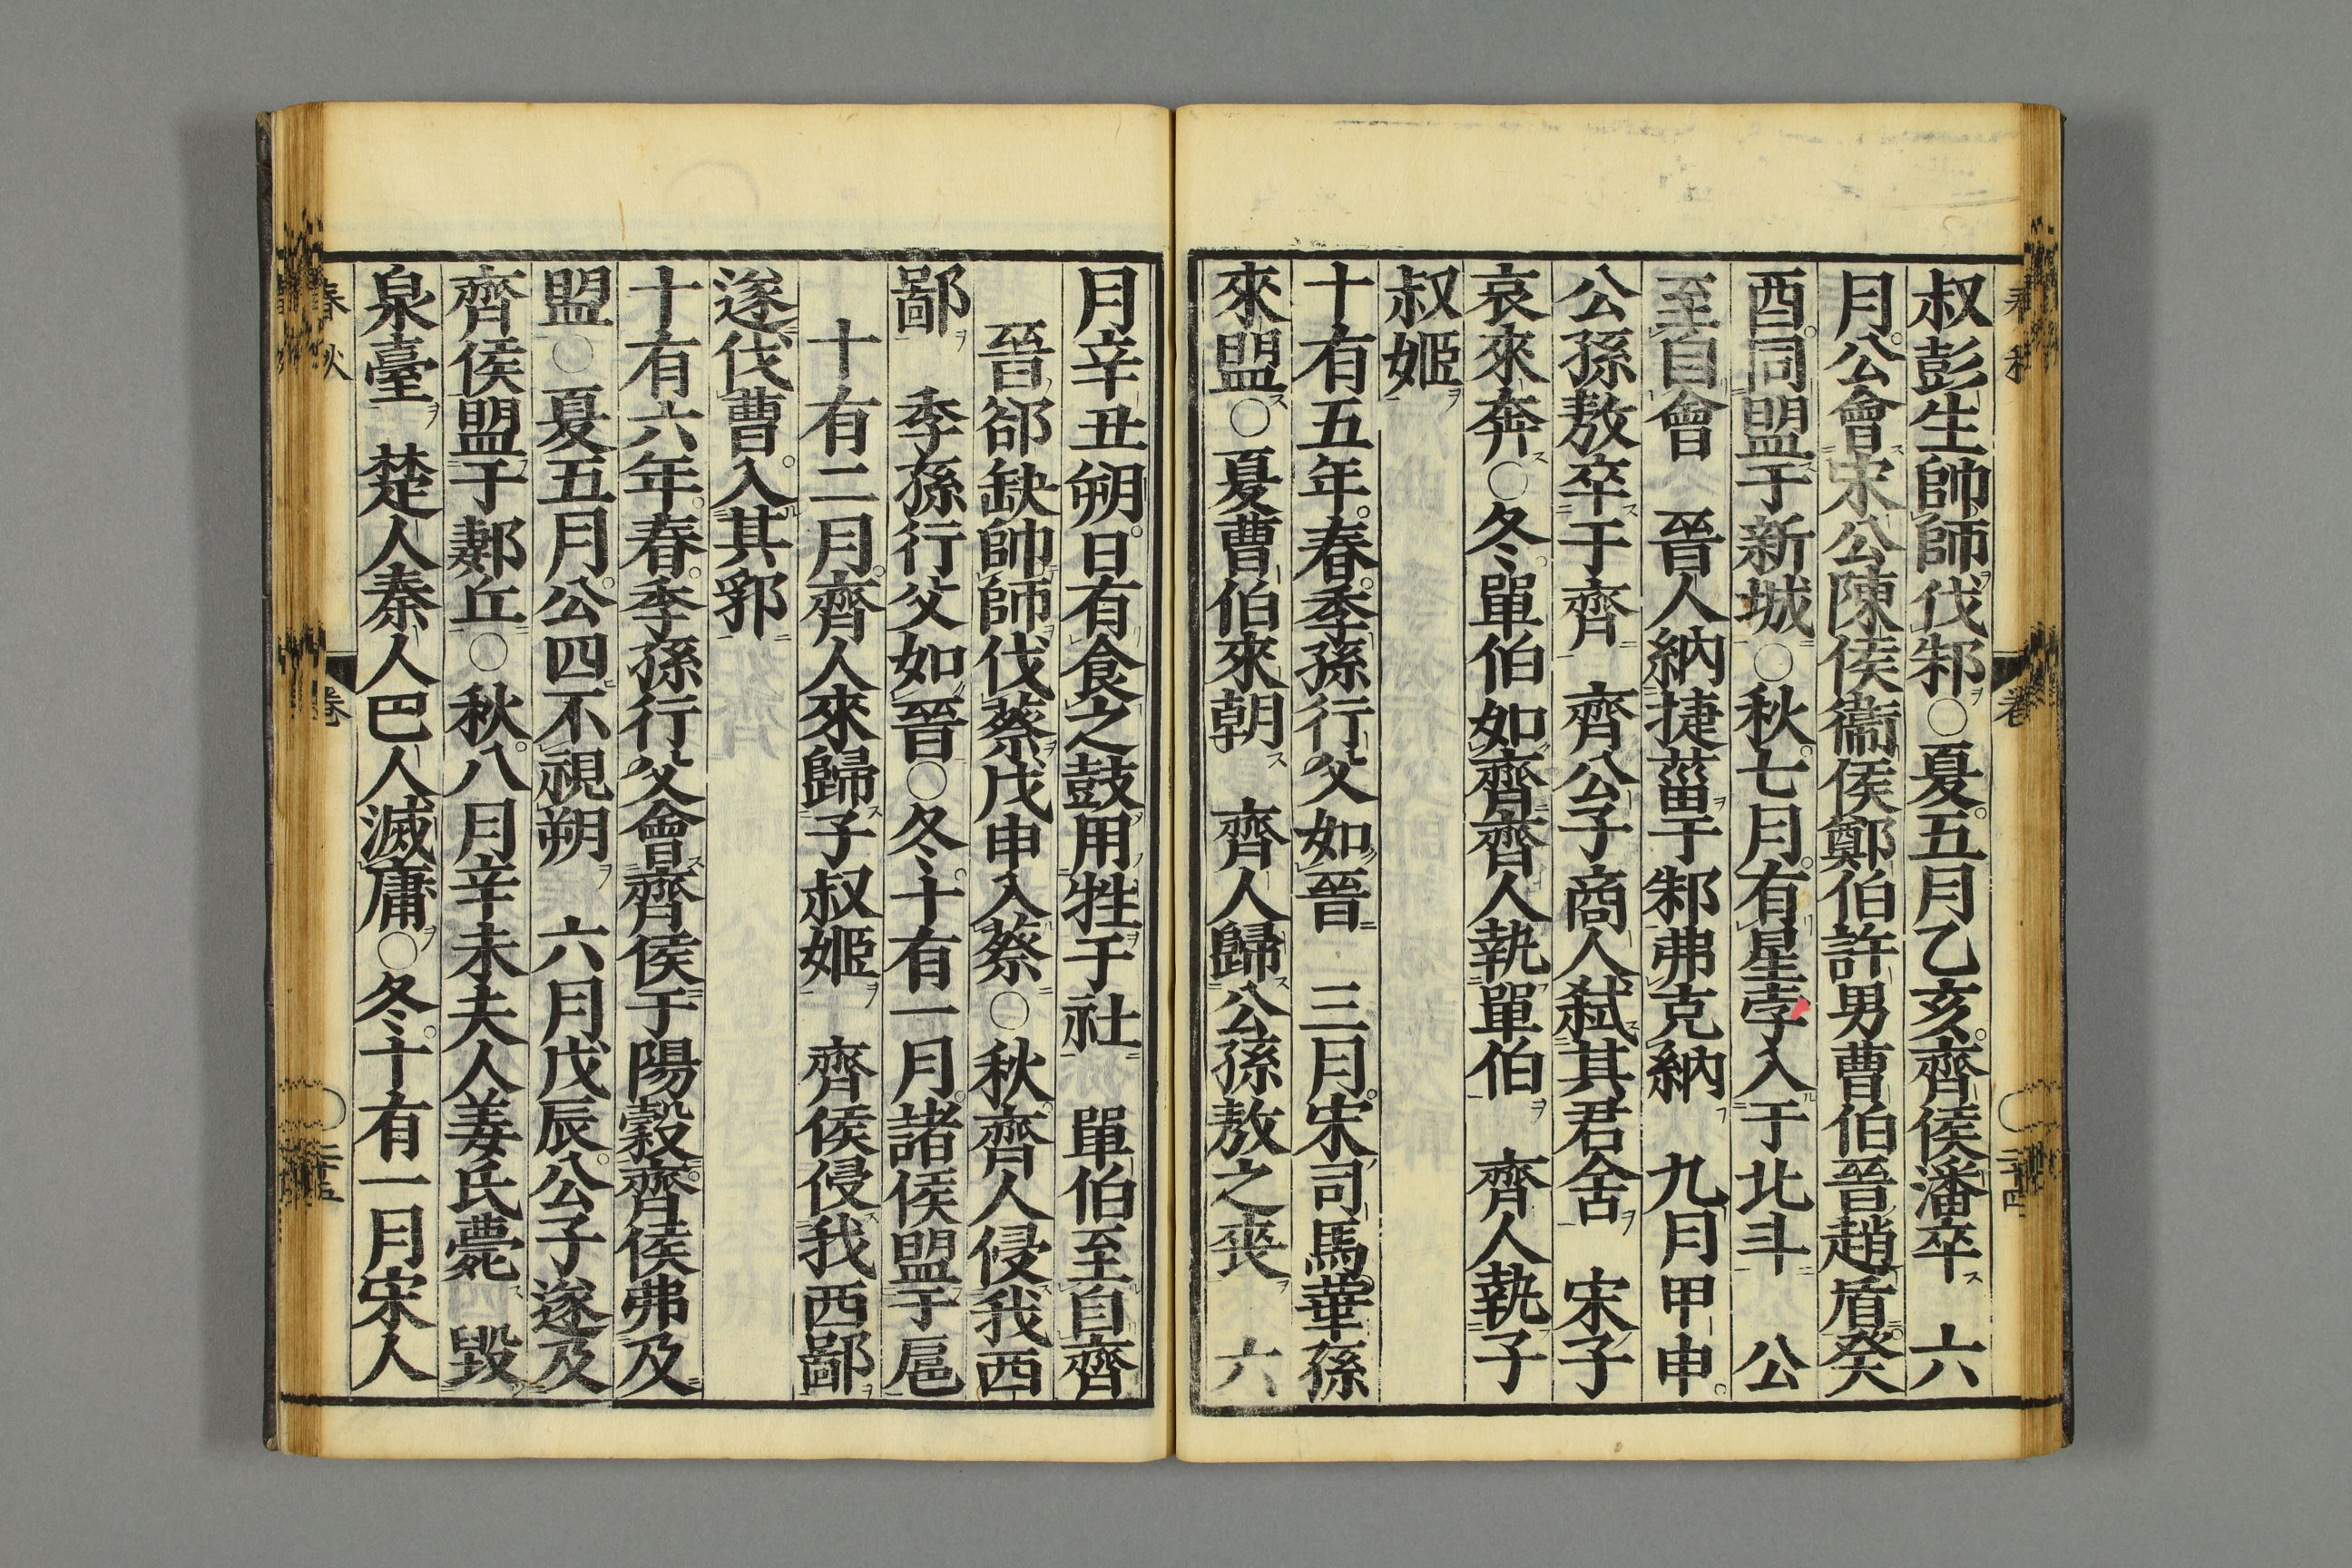 叔彭生帥師伐邾○夏五月乙亥齊侯潘卒　六
月公會宋公陳侯衞侯鄭伯許男曹伯晉趙盾癸
酉同盟于新城○秋七月有星孛入于北斗　公
至自會　晉人納捷菑于邾弗克納　九月甲申
公孫敖卒于齊　齊公子商人弑其君舍　宋子
哀來奔○冬單伯如齊齊人執單伯　齊人執子
叔姬
十有五年春季孫行父如晉　三月宋司馬華孫
來盟○夏曹伯來朝　齊人歸公孫敖之喪　六
月辛丑朔日有食之鼓用牲于社　單伯至自齊
晉郤缺帥師伐蔡戊申入蔡○秋齊人侵我西
鄙　季孫行父如晉○冬十有一月諸侯盟于扈
十有二月齊人來歸子叔姬　齊侯侵我西鄙
遂伐曹入其郛
十有六年春季孫行父會齊侯于陽穀齊侯弗及
盟○夏五月公四不視朔　六月戊辰公子遂及
齊侯盟于郪丘○秋八月辛未夫人姜氏薨　毀
泉臺　楚人秦人巴人滅庸○冬十有一月宋人
春秋
卷
二十五